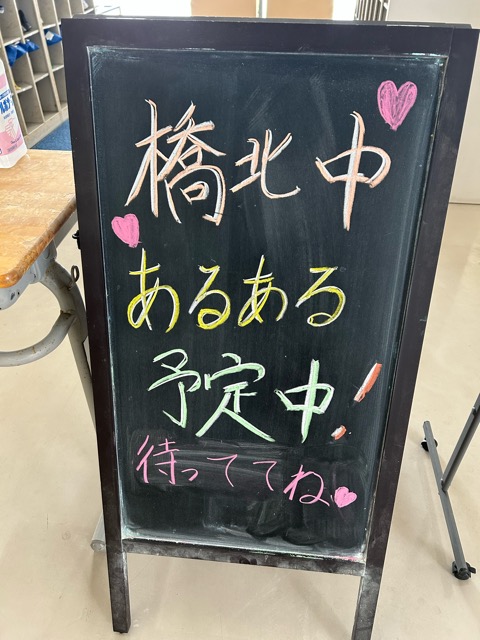 橋北中
あるある
予定中!
待っててね